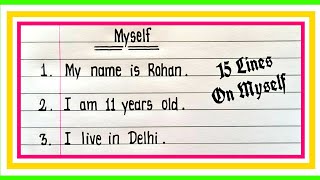 Myself
1. My name is Rohan.
2. I am 11 years old.
3. I live in Delhi.
15 Lines
On Myself